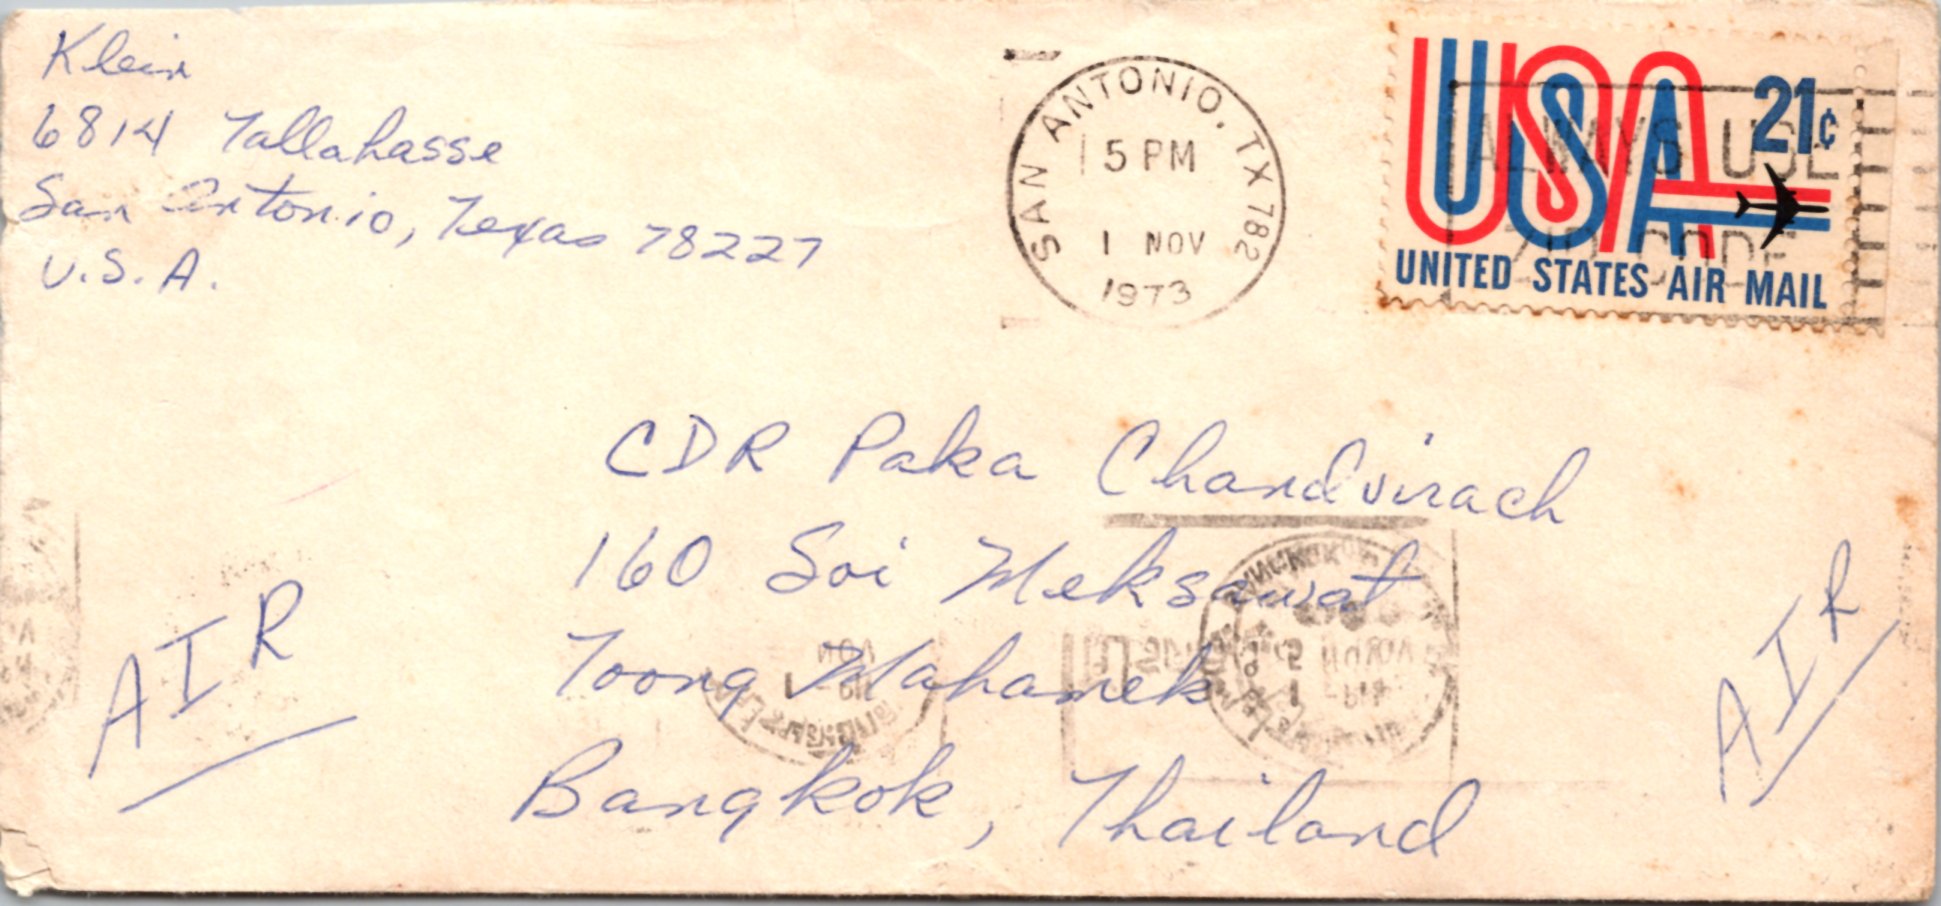 Klein
6814 Tallahasse
San Antonio, Texas 78227
U.S.A.
SAN ANTONIO, TX 782
5 PM
1 NOV
1973
USA 21¢
ALWAYS USE
ZIP CODE
UNITED STATES AIR MAIL
CDR Paka Chandvirach
160 Soi Meksawat
Toong Mahamek
Bangkok, Thailand
AIR
AIR